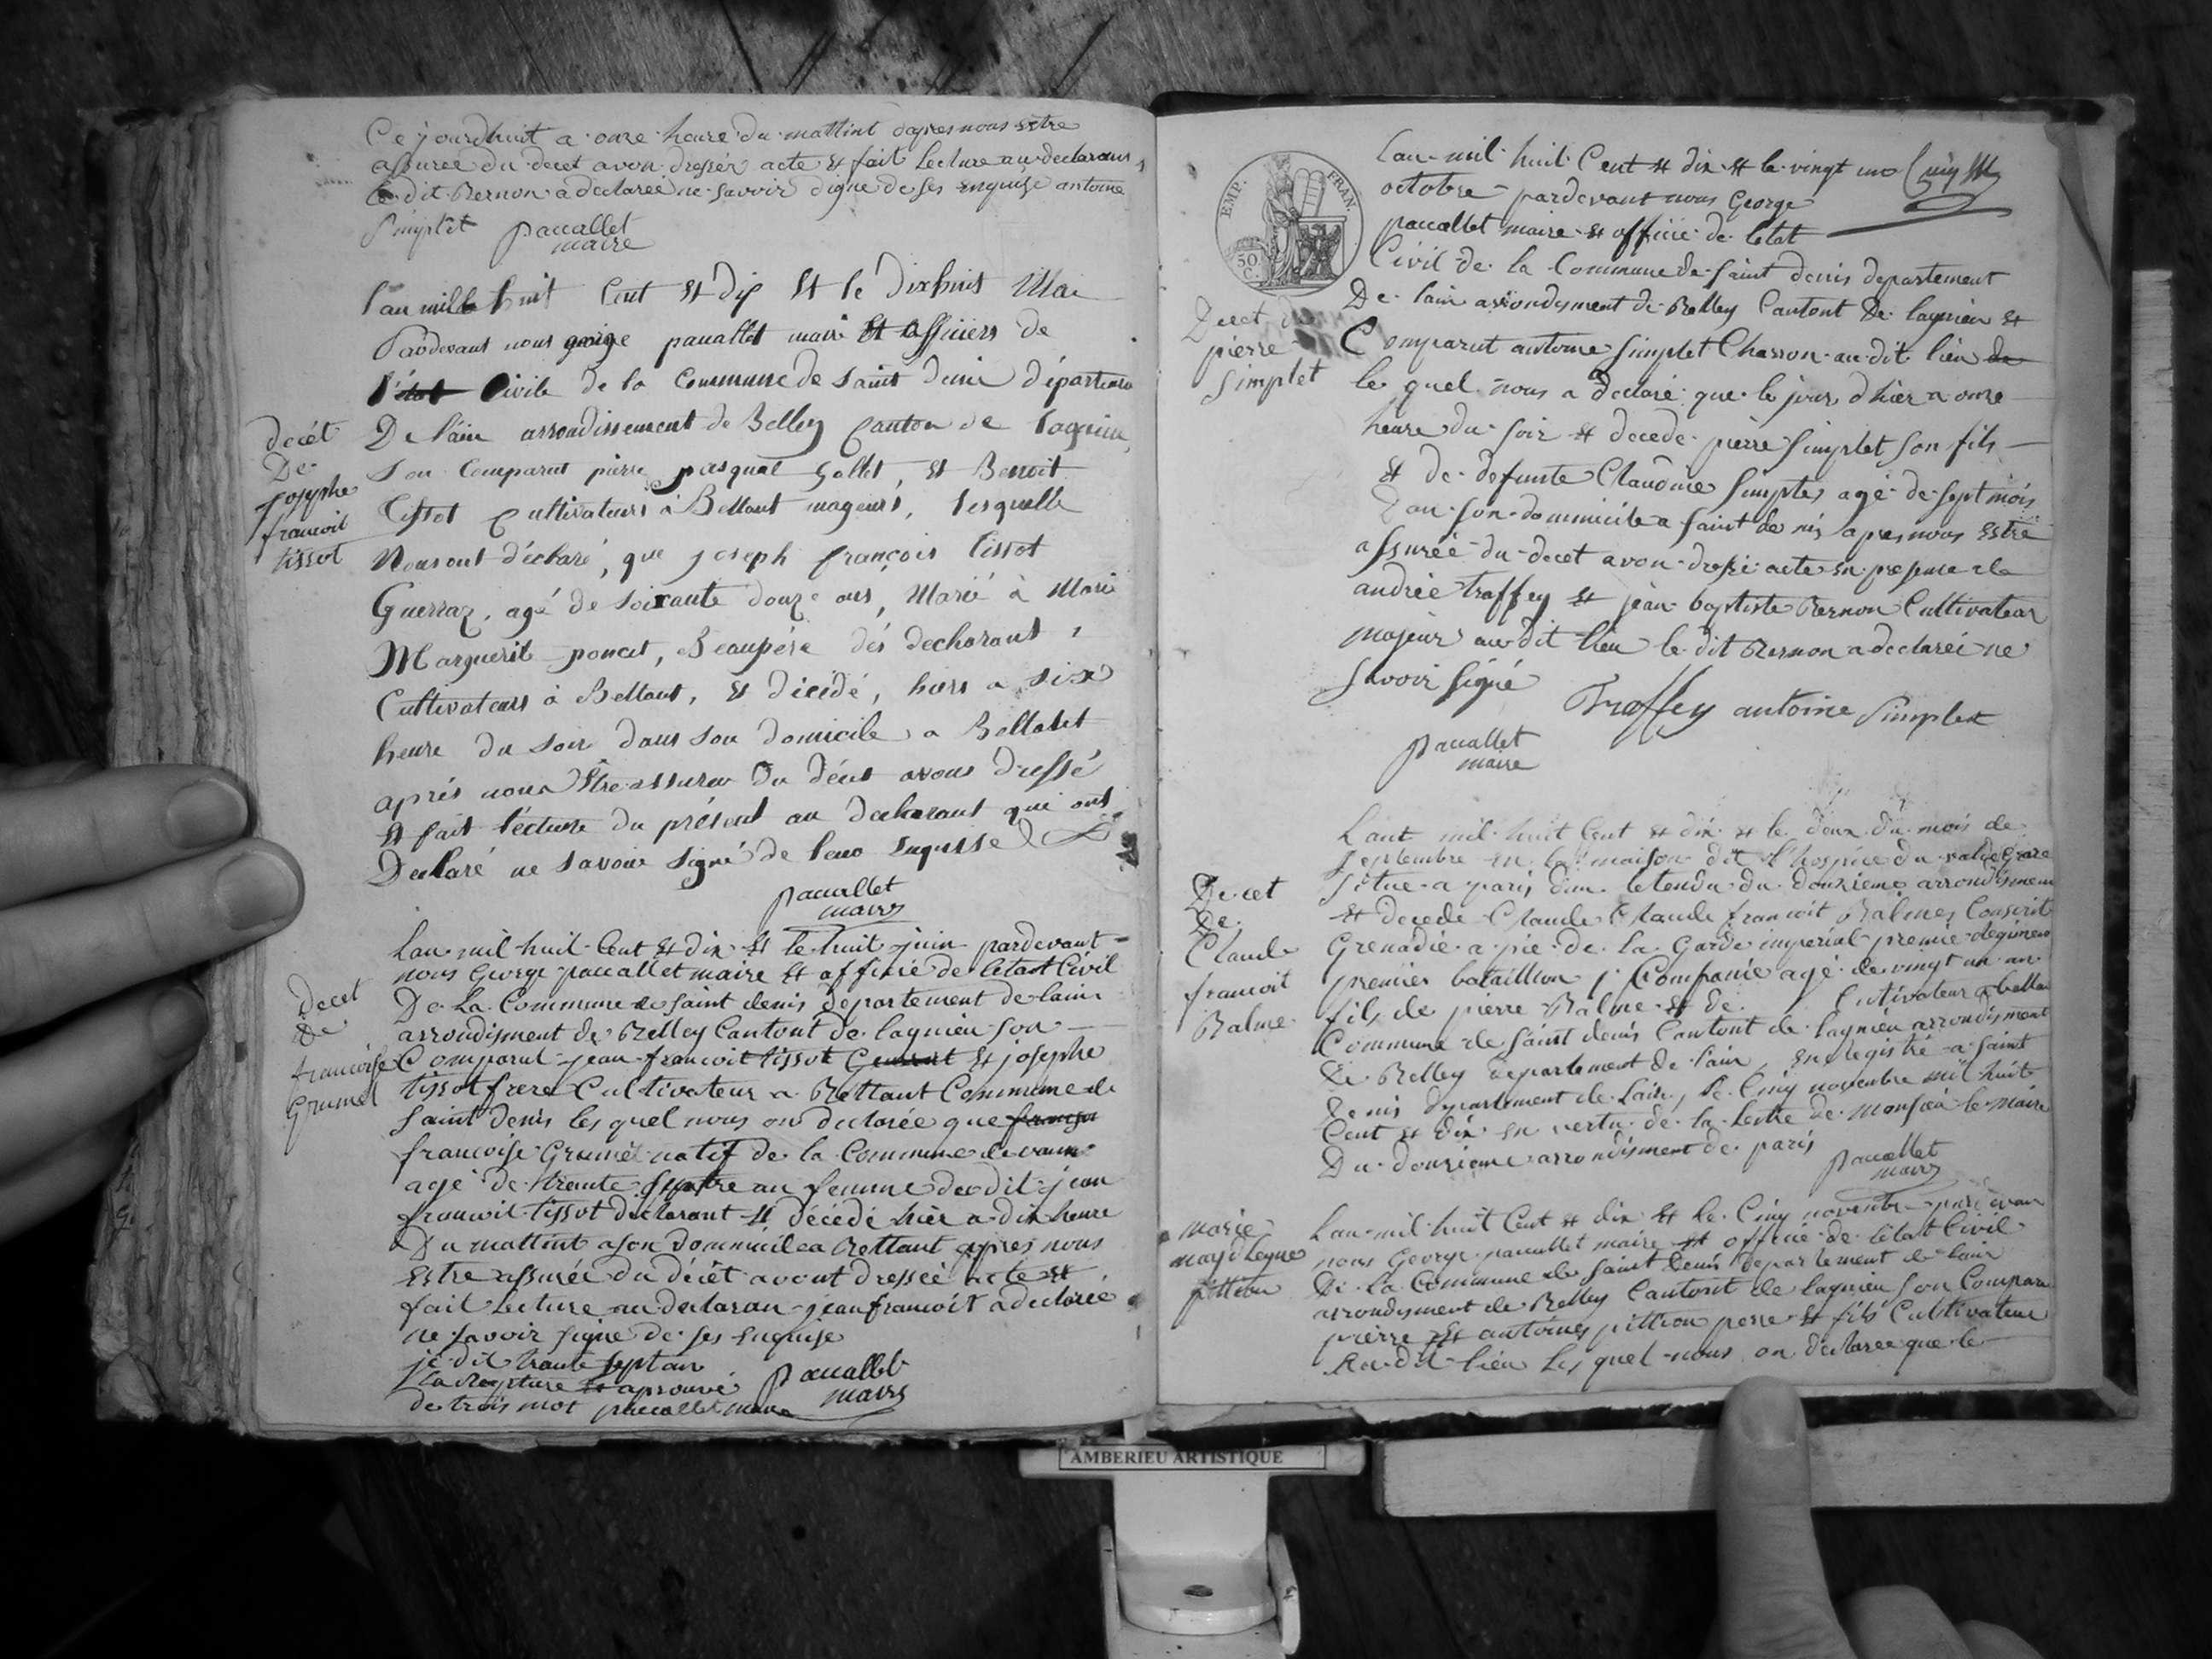 Ce jourdhuit a onze heure du mattint dapres nous Estre
assuree du decet avon dressér acte et fait Lecture au declarans
le dit Bernon a declareé ne savoir digne de ses enquise antoine
Simplet paucallet
maire
l'an mille huit Cent Et dix Et le dixhuit Mai
Pardevant nous george paucallet maire Et officiers de
l'état Civile de la Commune de Saint denis départeme
De l'ain arrondissement de Belley Canton de lagnieu
Son Comparut pierre pasqual Gollet, et Benoit
Tissot Cultivateurs à Bettant mageurs, lesquelle
Nous ont déclaré, que joseph françois Tissot
Guerraz, agé de soixante douze ans, Marié à Marie
Marguerit poncet, Beaupére dés declarant,
Cultivateurs à Bettant, Et décédé, hiers a six
heure du soir dans son domicile a Bettant
aprés nous Etre assurer du décet avons dressé
Et fait lécture du présent au declarant qui ont
Declaré ne savoir signé de leur enquisse
paucallet
maire
decét
De
josephe
francoit
tissot
Lan mil huit Cent Et dix Et le huit juin pardevant
nous George paucallet maire Et officié de letat Civil
De La Commune de saint denis departement de lain
arrondisment de Belley Cantont de lagnieu son
Comparut jean francoit tissot Et josephe
tissot frere Cultivateur a Bettant Commune de
saint denis les quel nous on declarée que
francoise Grumet natif de la Commune de vaux
agé de trante an femme du dit jean
francoit tissot declarant Et décédé hièr a dix heure
Du mattint a son dommicile a Bettant apres nous
Estre assurée du décèt avont dressée acte Et
fait Lecture au declaran jean francoit a declarée
ne savoir signe de ses enquise
je dit trante Septan
La rapture Et aprouvé
de trois mot paucallet maire
paucallet
maire
Decet
De
francoise
Grumel
EMP. FRAN.
50
C.
Lan mil huit Cent Et dix Et le vingt un
octobre pardevant nous George
paucallet maire Et officié de letat
Civil de la Commune de saint denis departement
De lain arrondisment de Belley Cantont De lagnieu Et
Comparut antoine Simplet Charron au dit lieu de
le quel nous a declaré que le jour dhier a onze
heure du soir Et decede pierre Simplet son fils
Et de defunte Claudine Simplet agé de sept mois
Dan son dommicile a saint denis apres nous Estre
assurée du decet avon dressé acte en presence de
andrée traffey Et jean baptiste Bernon Cultivateur
majeur au dit lieu le dit Bernon a declareé ne
savoir signé
Traffey antoine Simplet
paucallet
maire
Decet de
pierre
Simplet
Lant mil huit Cent Et dix Et le deux du mois de
Septembre en la maison dit l'hospice du val de Grace
situe a paris dan letendu du douzieme arrondisment
Et decede Claude Claude francoit Balmes Conscrit
Grenadié a pié de la Garde imperial premié
premier bataillion Companie agé de vingt un an
fils de pierre Balme Et de Cultivateur a bettan
Commune de saint denis Cantont de lagnieu arrondisment
de Belley departement de lain, enregistré a saint
denis departement de lain, le Cinq novembre mil huit
Cent Et dix en vertu de la lettre de monsieu le maire
Du douzieme arrondisment de paris
paucallet
maire
Decet
De
Claude
francoit
Balme
Lan mil huit Cent Et dix Et le Cinq novembre pardevan
nous George paucallet maire Et officié de létat Civil
De la Commune de saint denis departement de lain
arrondisment de Belley Cantont de lagnieu son Compara
pierre Et antoines pittion pere Et fils Cultivateur
au dit lieu Les quel nous on declaree que le
marie
magdelegne
pittion
AMBERIEU ARTISTIQUE